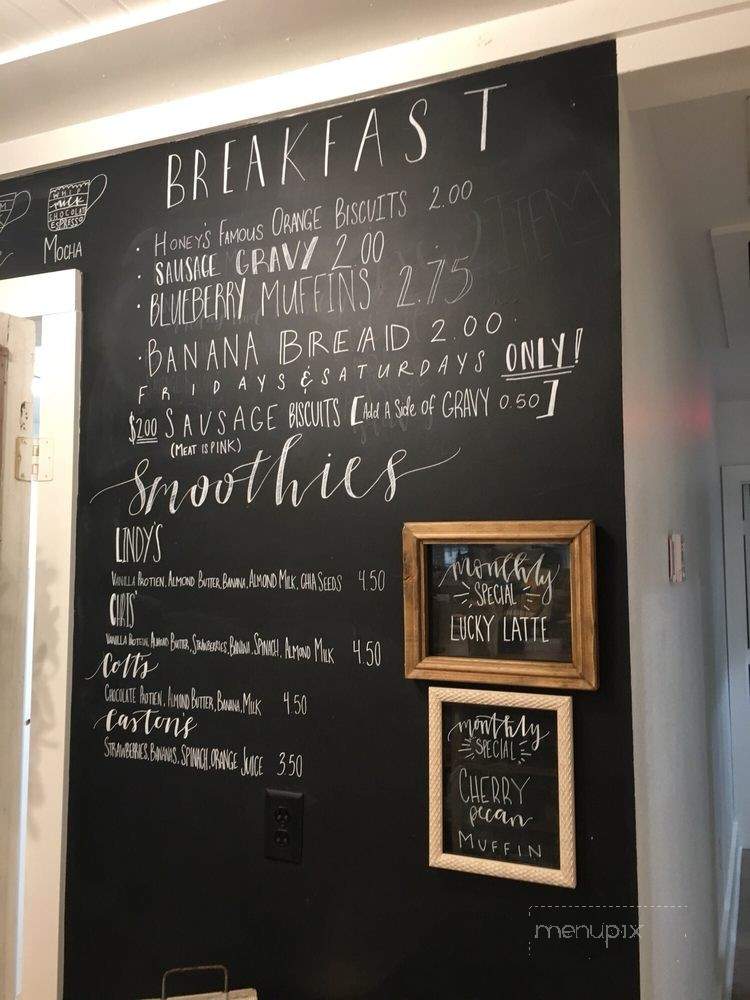 BREAKFAST
WHIP
milk
CHOCOLATE
ESPRESSO
MOCHA
· HONEY'S FAMOUS ORANGE BISCUITS 2.00
· SAUSAGE GRAVY 2.00
· BLUEBERRY MUFFINS 2.75
· BANANA BREAD 2.00
FRIDAYS & SATURDAYS ONLY!
$2.00 SAUSAGE BISCUITS [Add A Side of GRAVY 0.50]
(MEAT IS PINK)
Smoothies
LINDY'S
VANILLA PROTIEN, ALMOND BUTTER, BANANA, ALMOND MILK, CHIA SEEDS 4.50
CHRIS'
VANILLA PROTEIN, ALMOND BUTTER, STRAWBERRIES, BANANA, SPINACH, ALMOND MILK 4.50
Colts
CHOCOLATE PROTIEN, ALMOND BUTTER, BANANA, MILK 4.50
Eastons
STRAWBERRIES, BANANAS, SPINACH, ORANGE JUICE 3.50
monthly
SPECIAL
LUCKY LATTE
monthly
SPECIAL
CHERRY
pecan
MUFFIN
menupix